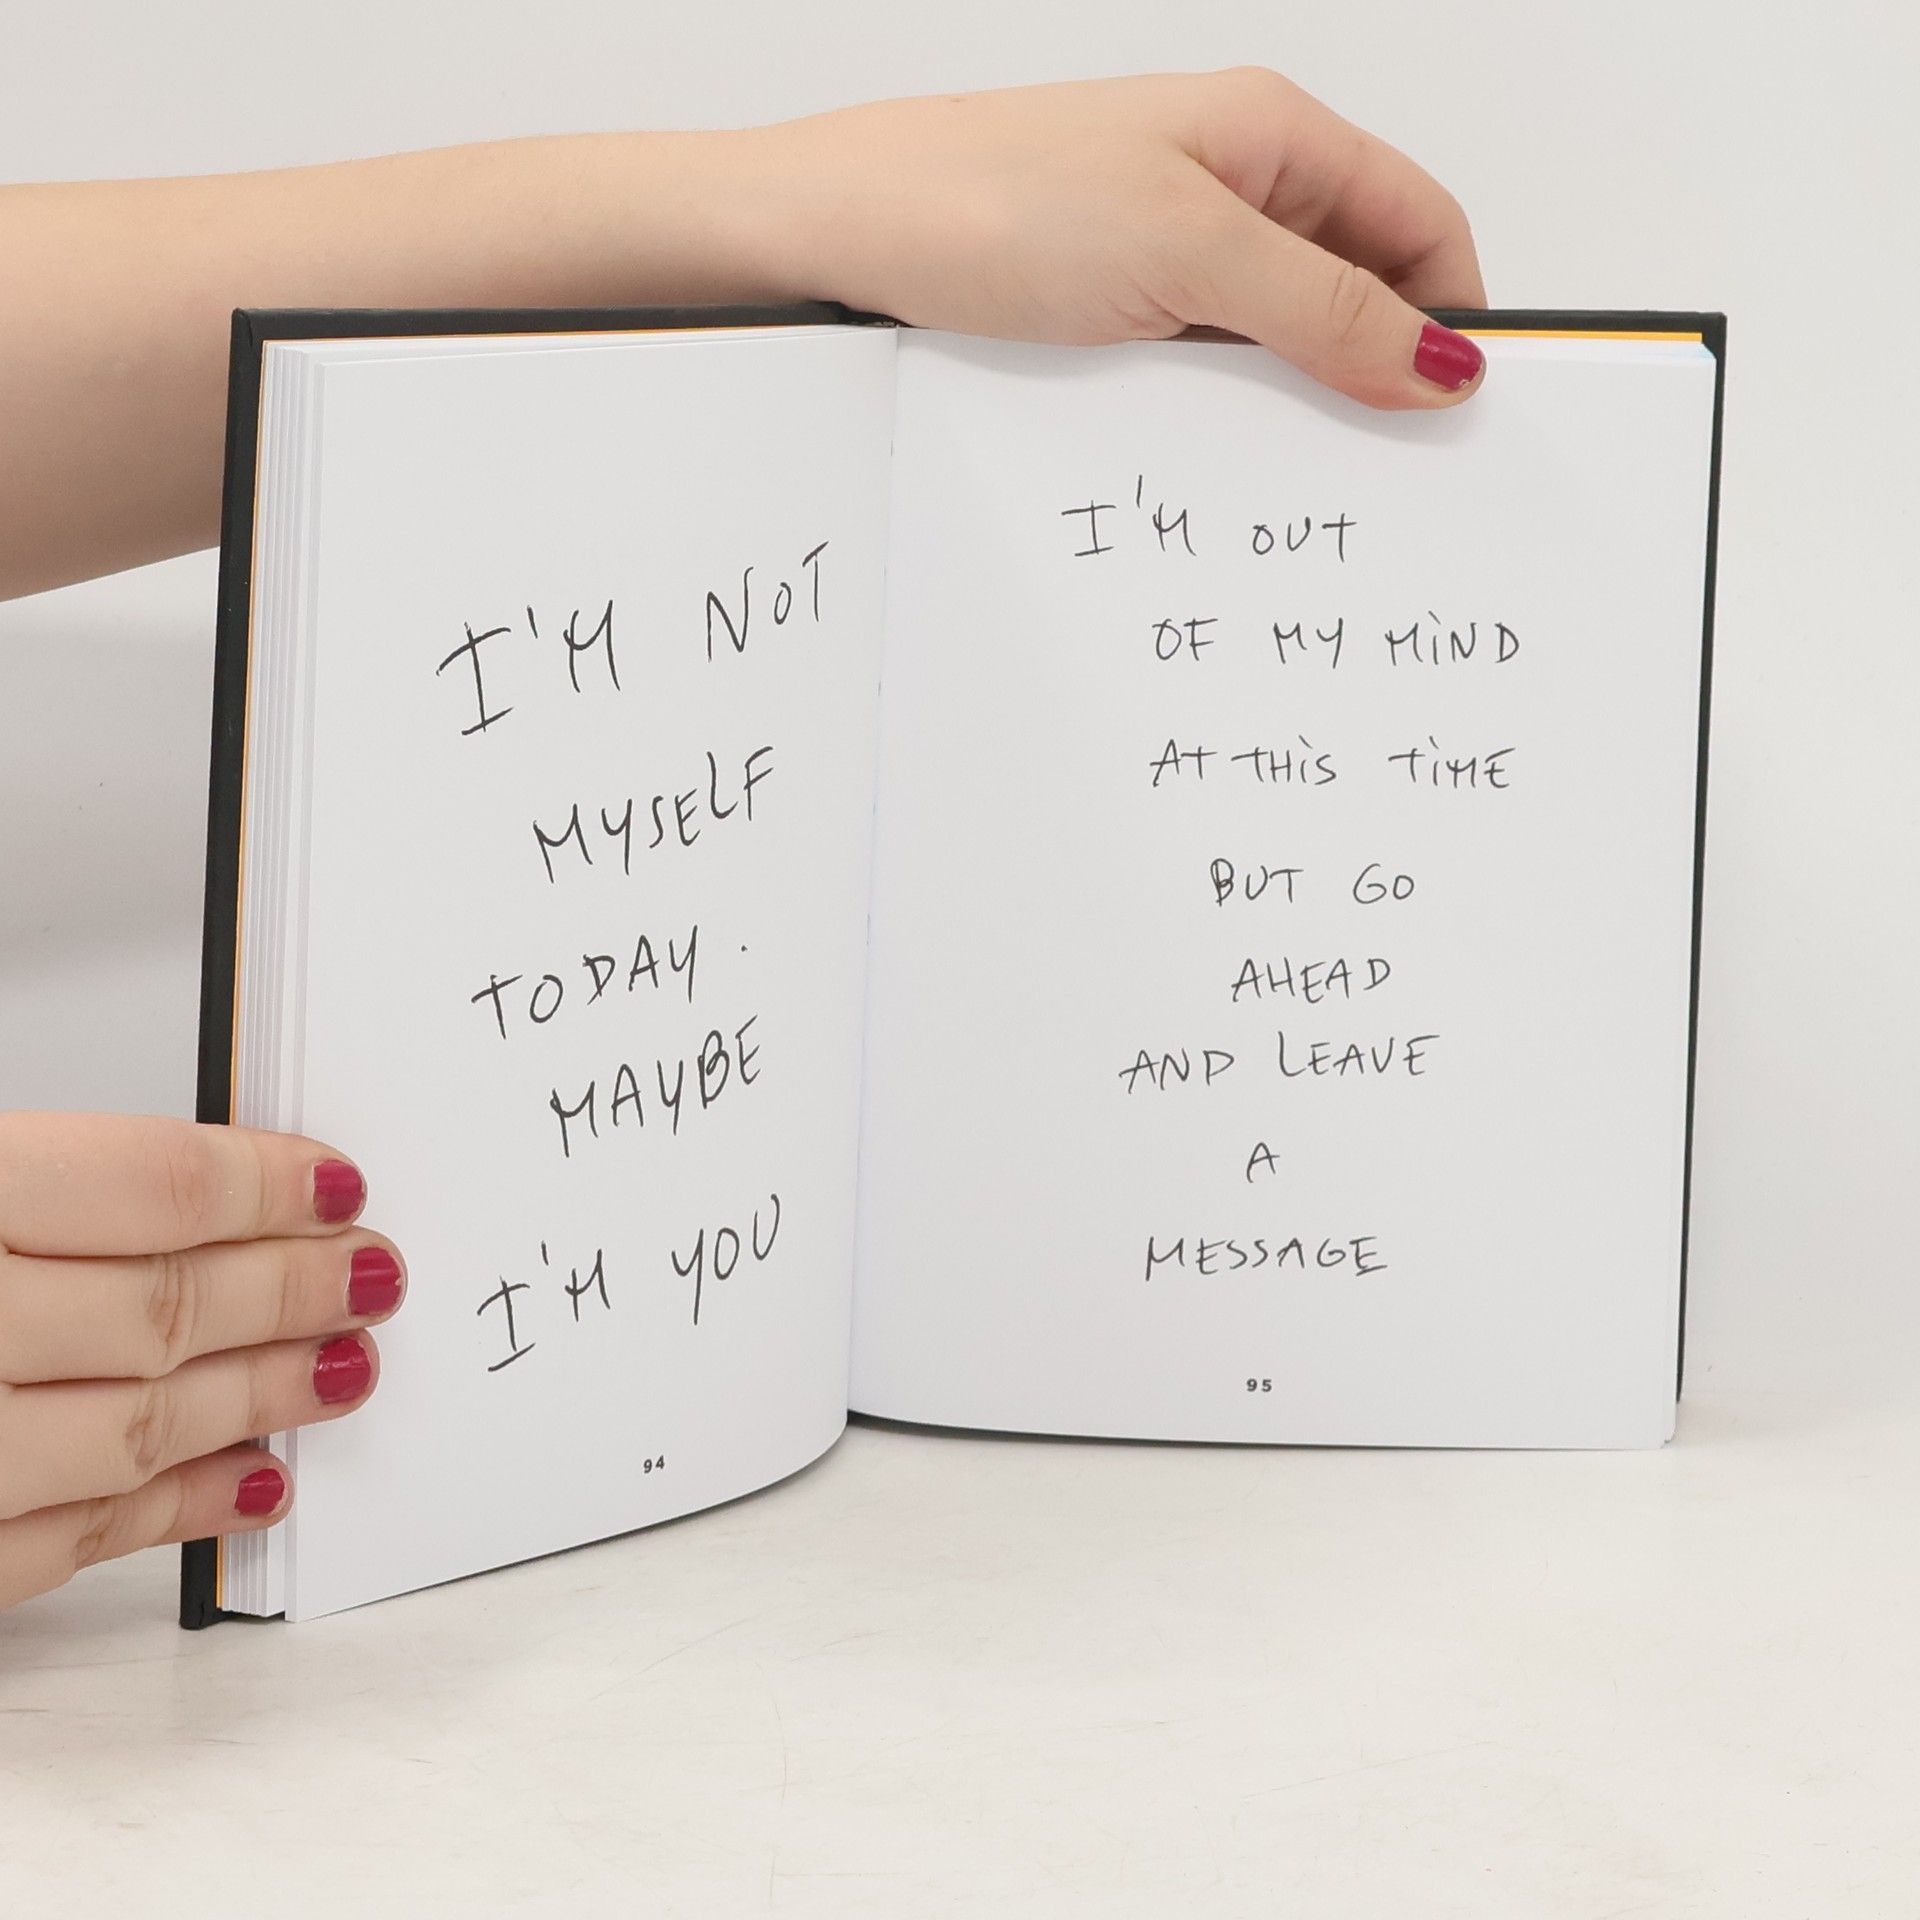 I'M NOT
MYSELF
TODAY.
MAYBE
I'M YOU
94
I'M OUT
OF MY MIND
AT THIS TIME
BUT GO
AHEAD
AND LEAVE
A
MESSAGE
95